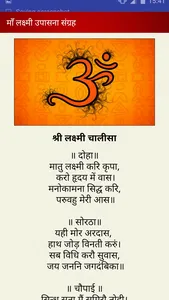 Saving screenshot...
15:41
माँ लक्ष्मी उपासना संग्रह
ॐ
श्री लक्ष्मी चालीसा
॥ दोहा॥
मातु लक्ष्मी करि कृपा,
करो हृदय में वास।
मनोकामना सिद्ध करि,
परुवहु मेरी आस॥
॥ सोरठा॥
यही मोर अरदास,
हाथ जोड़ विनती करुं।
सब विधि करौ सुवास,
जय जननि जगदंबिका॥
॥ चौपाई ॥